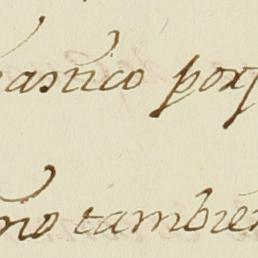 astico porq
no tambien